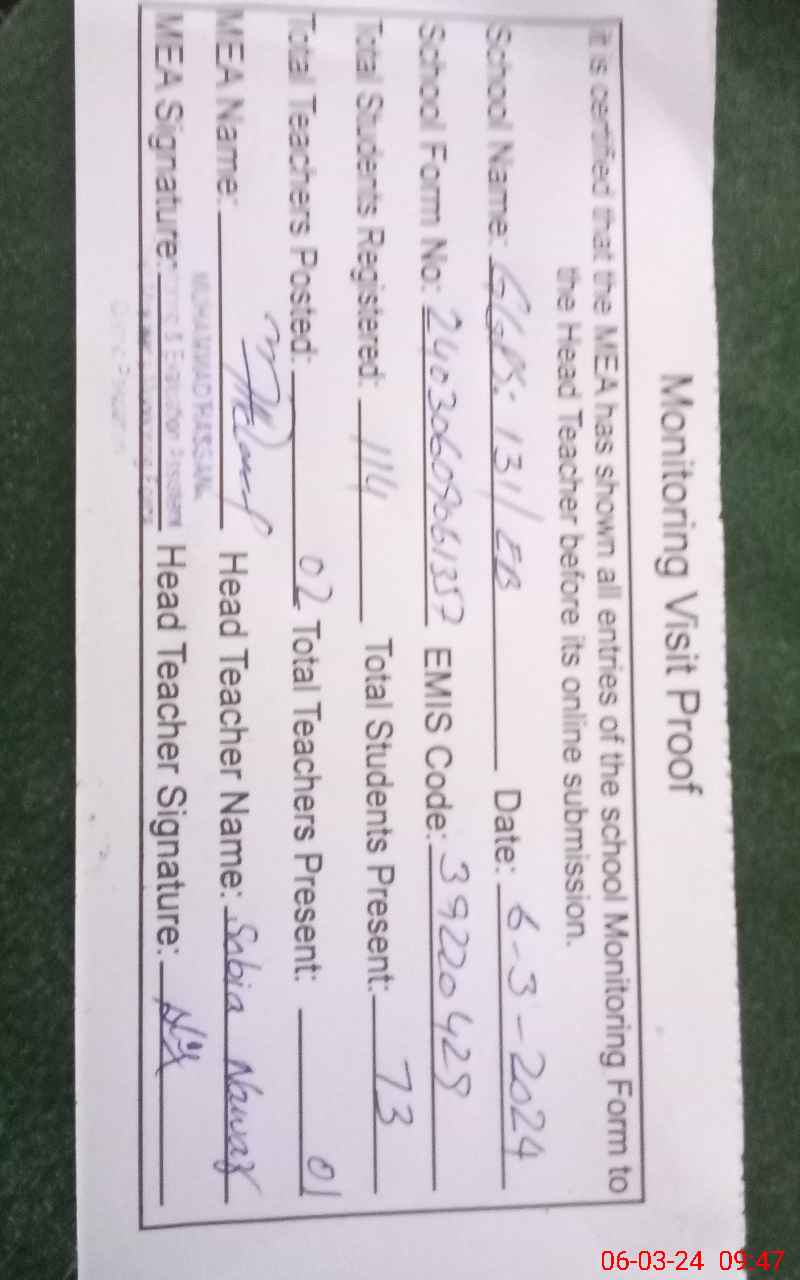 Monitoring Visit Proof
It is certified that the MEA has shown all entries of the school Monitoring Form to
the Head Teacher before its online submission.
School Name: GGPS. 131/EB Date: 6-3-2024
School Form No: EMIS Code: 39220429
Total Students Registered: 114 Total Students Present: 73
Total Teachers Posted: 02 Total Teachers Present: 01
MEA Name: Head Teacher Name: Sabia Nawaz
MUHAMMAD HASSAN
MEA Signature: Head Teacher Signature:
& Evaluation Assistant
06-03-24 09:47